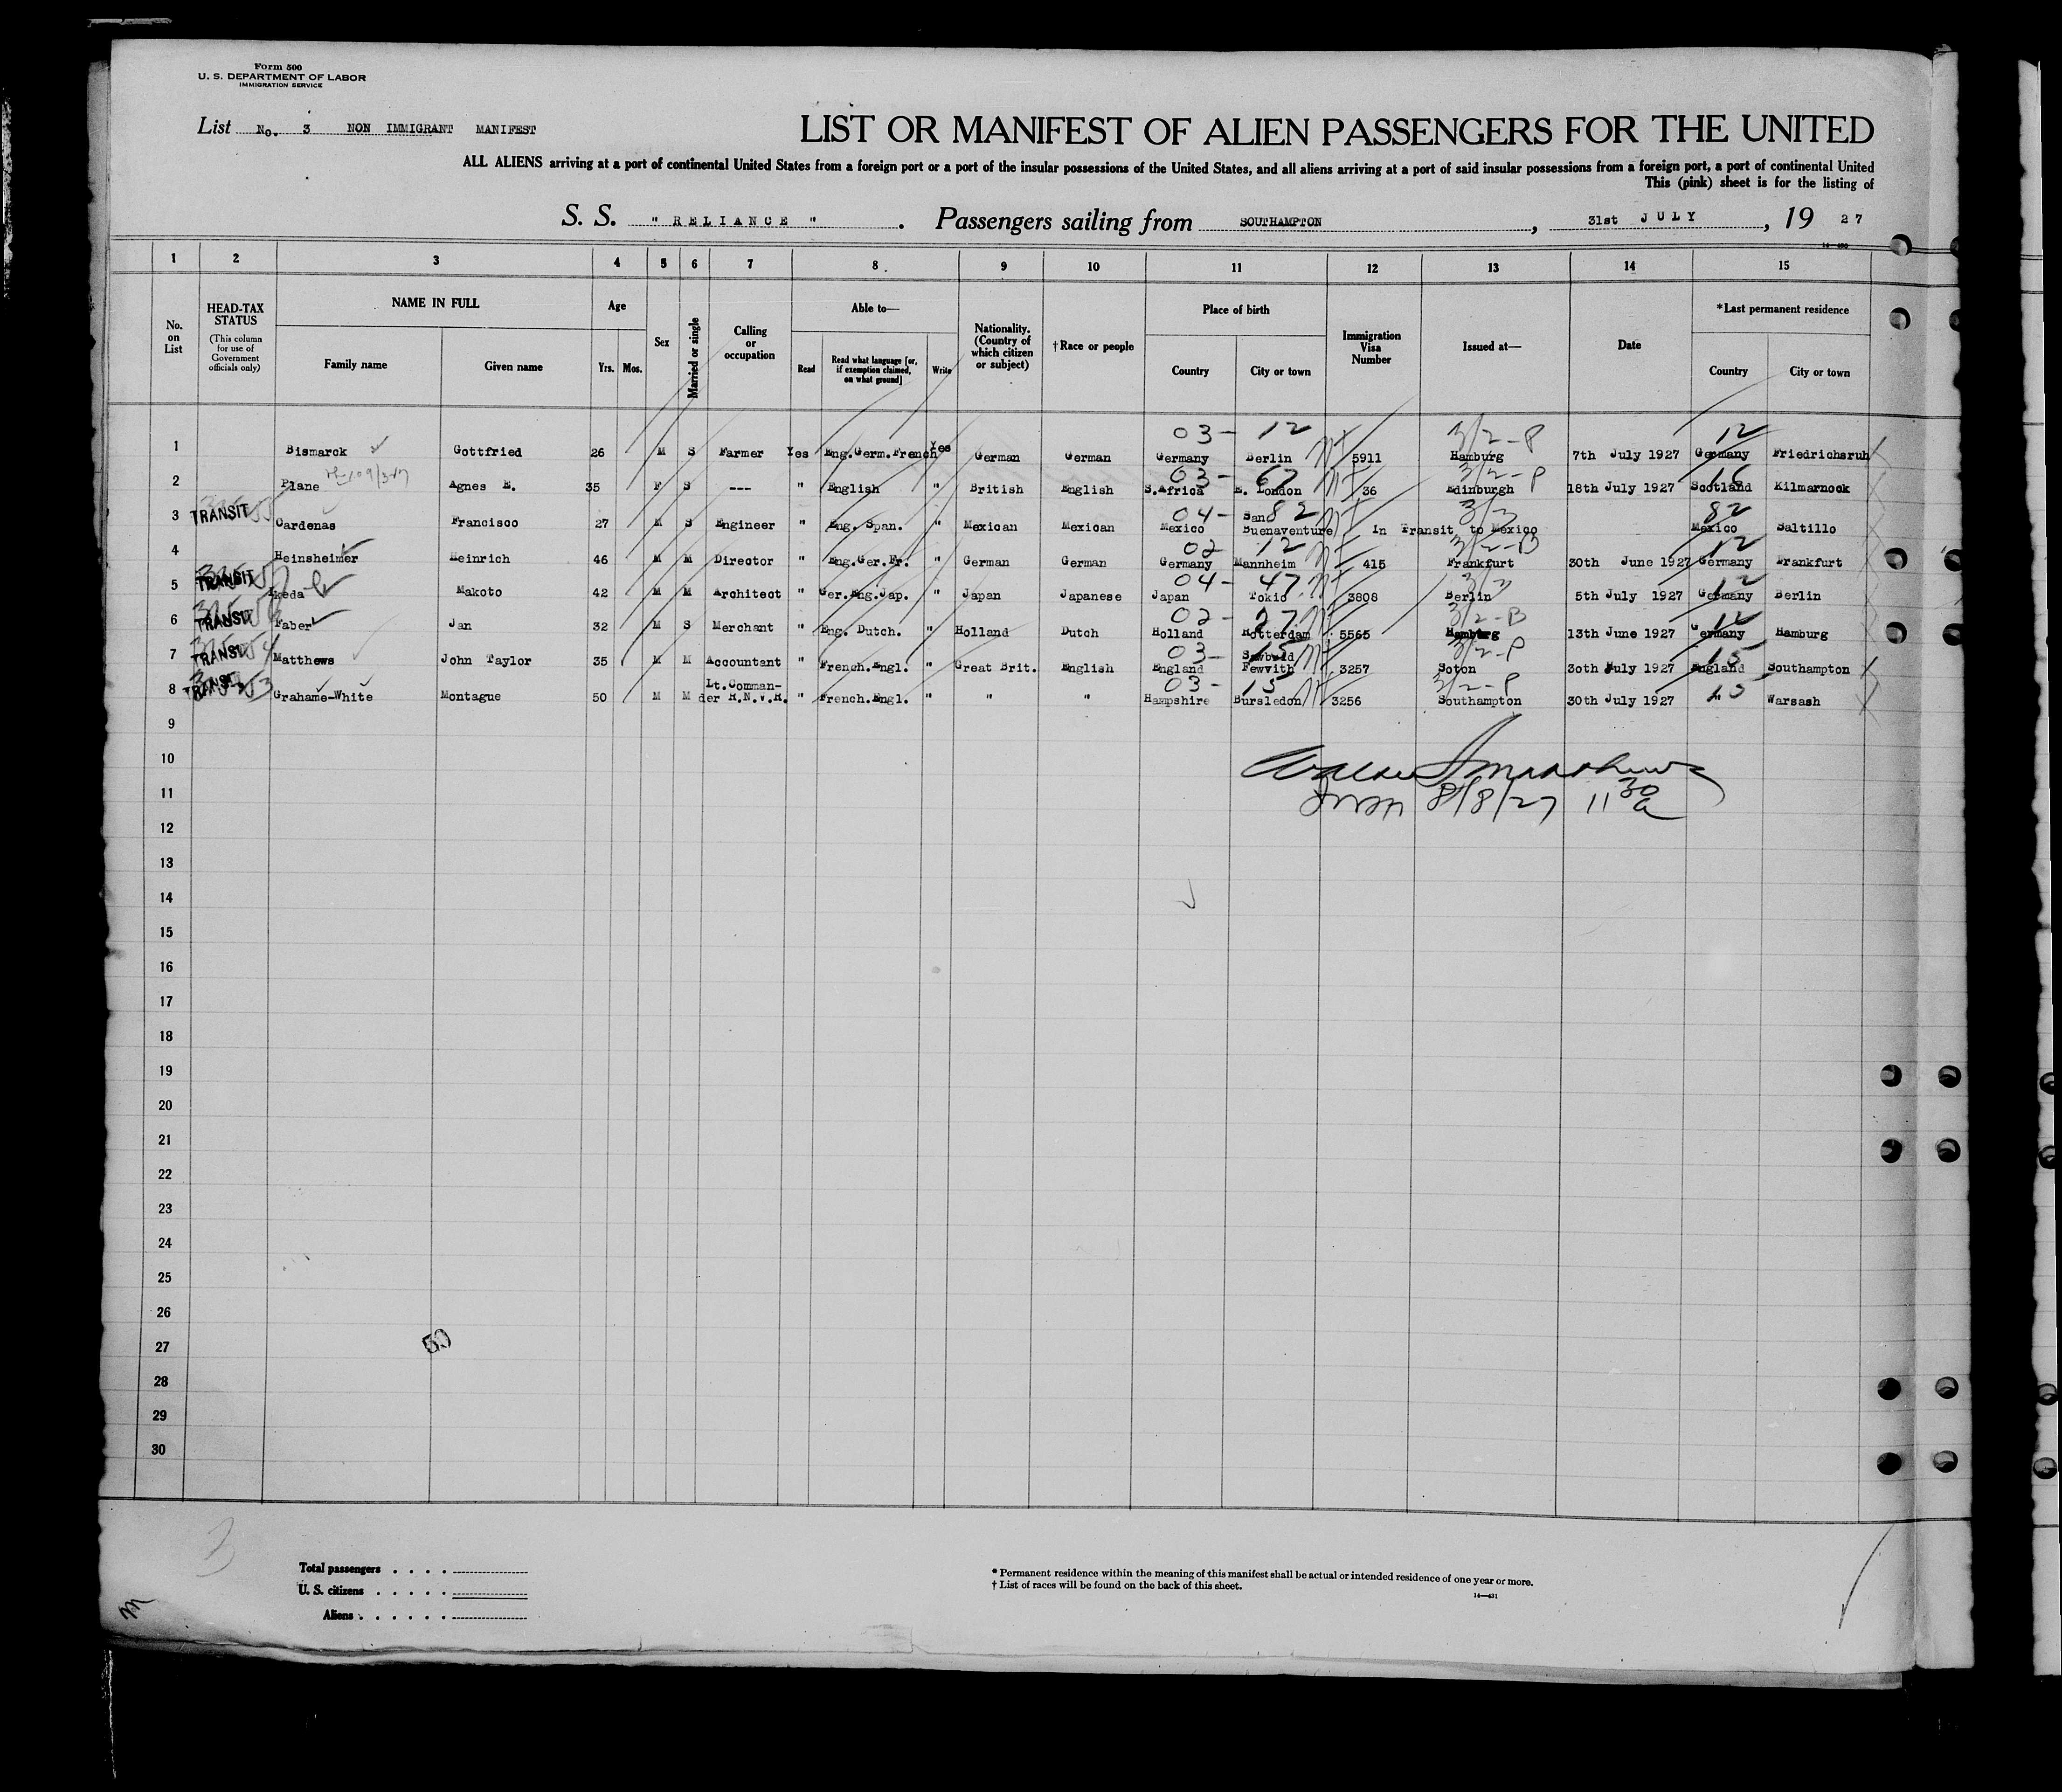 Form 500
U. S. DEPARTMENT OF LABOR
IMMIGRATION SERVICE
List No. 3 NON IMMIGRANT MANIFEST
LIST OR MANIFEST OF ALIEN PASSENGERS FOR THE UNITED
ALL ALIENS arriving at a port of continental United States from a foreign port or a port of the insular possessions of the United States, and all aliens arriving at a port of said insular possessions from a foreign port, a port of continental United
This (pink) sheet is for the listing of
S. S. " RELIANCE " . Passengers sailing from SOUTHAMPTON , 31st JULY , 19 27
1 2 3 4 5 6 7 8 9 10 11 12 13 14 15
No. on List
HEAD-TAX STATUS (This column for use of Government officials only)
NAME IN FULL Family name Given name
Age Yrs. Mos.
Sex
Married or single
Calling or occupation
Able to— Read Read what language [or, if exemption claimed, on what ground] Write
Nationality. (Country of which citizen or subject)
†Race or people
Place of birth Country City or town
Immigration Visa Number
Issued at—
Date
*Last permanent residence Country City or town
03- 12 3/2-P 12
1 Bismarck Gottfried 26 M S Farmer Yes Eng.Germ.French Yes German German Germany Berlin 5911 Hamburg 7th July 1927 Germany Friedrichsruh
03- 67 3/2-P 16
2 Plane Agnes E. 35 F S --- " English " British English S.Africa E. London 36 Edinburgh 18th July 1927 Scotland Kilmarnock
04- 82 3/3 82
3 TRANSIT Cardenas Francisco 27 M S Engineer " Eng. Span. " Mexican Mexican Mexico San Buenaventure In Transit to Mexico Mexico Saltillo
02 12 3/2-B 12
4 Heinsheimer Heinrich 46 M M Director " Eng.Ger.Fr. " German German Germany Mannheim 415 Frankfurt 30th June 1927 Germany Frankfurt
04- 47 3/3 12
5 TRANSIT Ikeda Makoto 42 M M Architect " Ger.Eng.Jap. " Japan Japanese Japan Tokio 3808 Berlin 5th July 1927 Germany Berlin
02- 27 3/2-B 12
6 TRANSIT Faber Jan 32 M S Merchant " Eng. Dutch. " Holland Dutch Holland Rotterdam 5565 Hamburg 13th June 1927 Germany Hamburg
03- 15 3/2-P 15
7 TRANSIT Matthews John Taylor 35 M M Accountant " French.Engl. " Great Brit. English England Fewvith 3257 Soton 30th July 1927 England Southampton
03- 15 3/2-P 15
8 TRANSIT Grahame-White Montague 50 M M Lt.Comman-der R.N.V.R. " French.Engl. " " " Hampshire Bursledon 3256 Southampton 30th July 1927 " Warsash
9
10
11 8/8/27 11 30 a
12
13
14
15
16
17
18
19
20
21
22
23
24
25
26
27
50
28
29
30
3
Total passengers
U. S. citizens
Aliens
* Permanent residence within the meaning of this manifest shall be actual or intended residence of one year or more.
† List of races will be found on the back of this sheet.
14—431